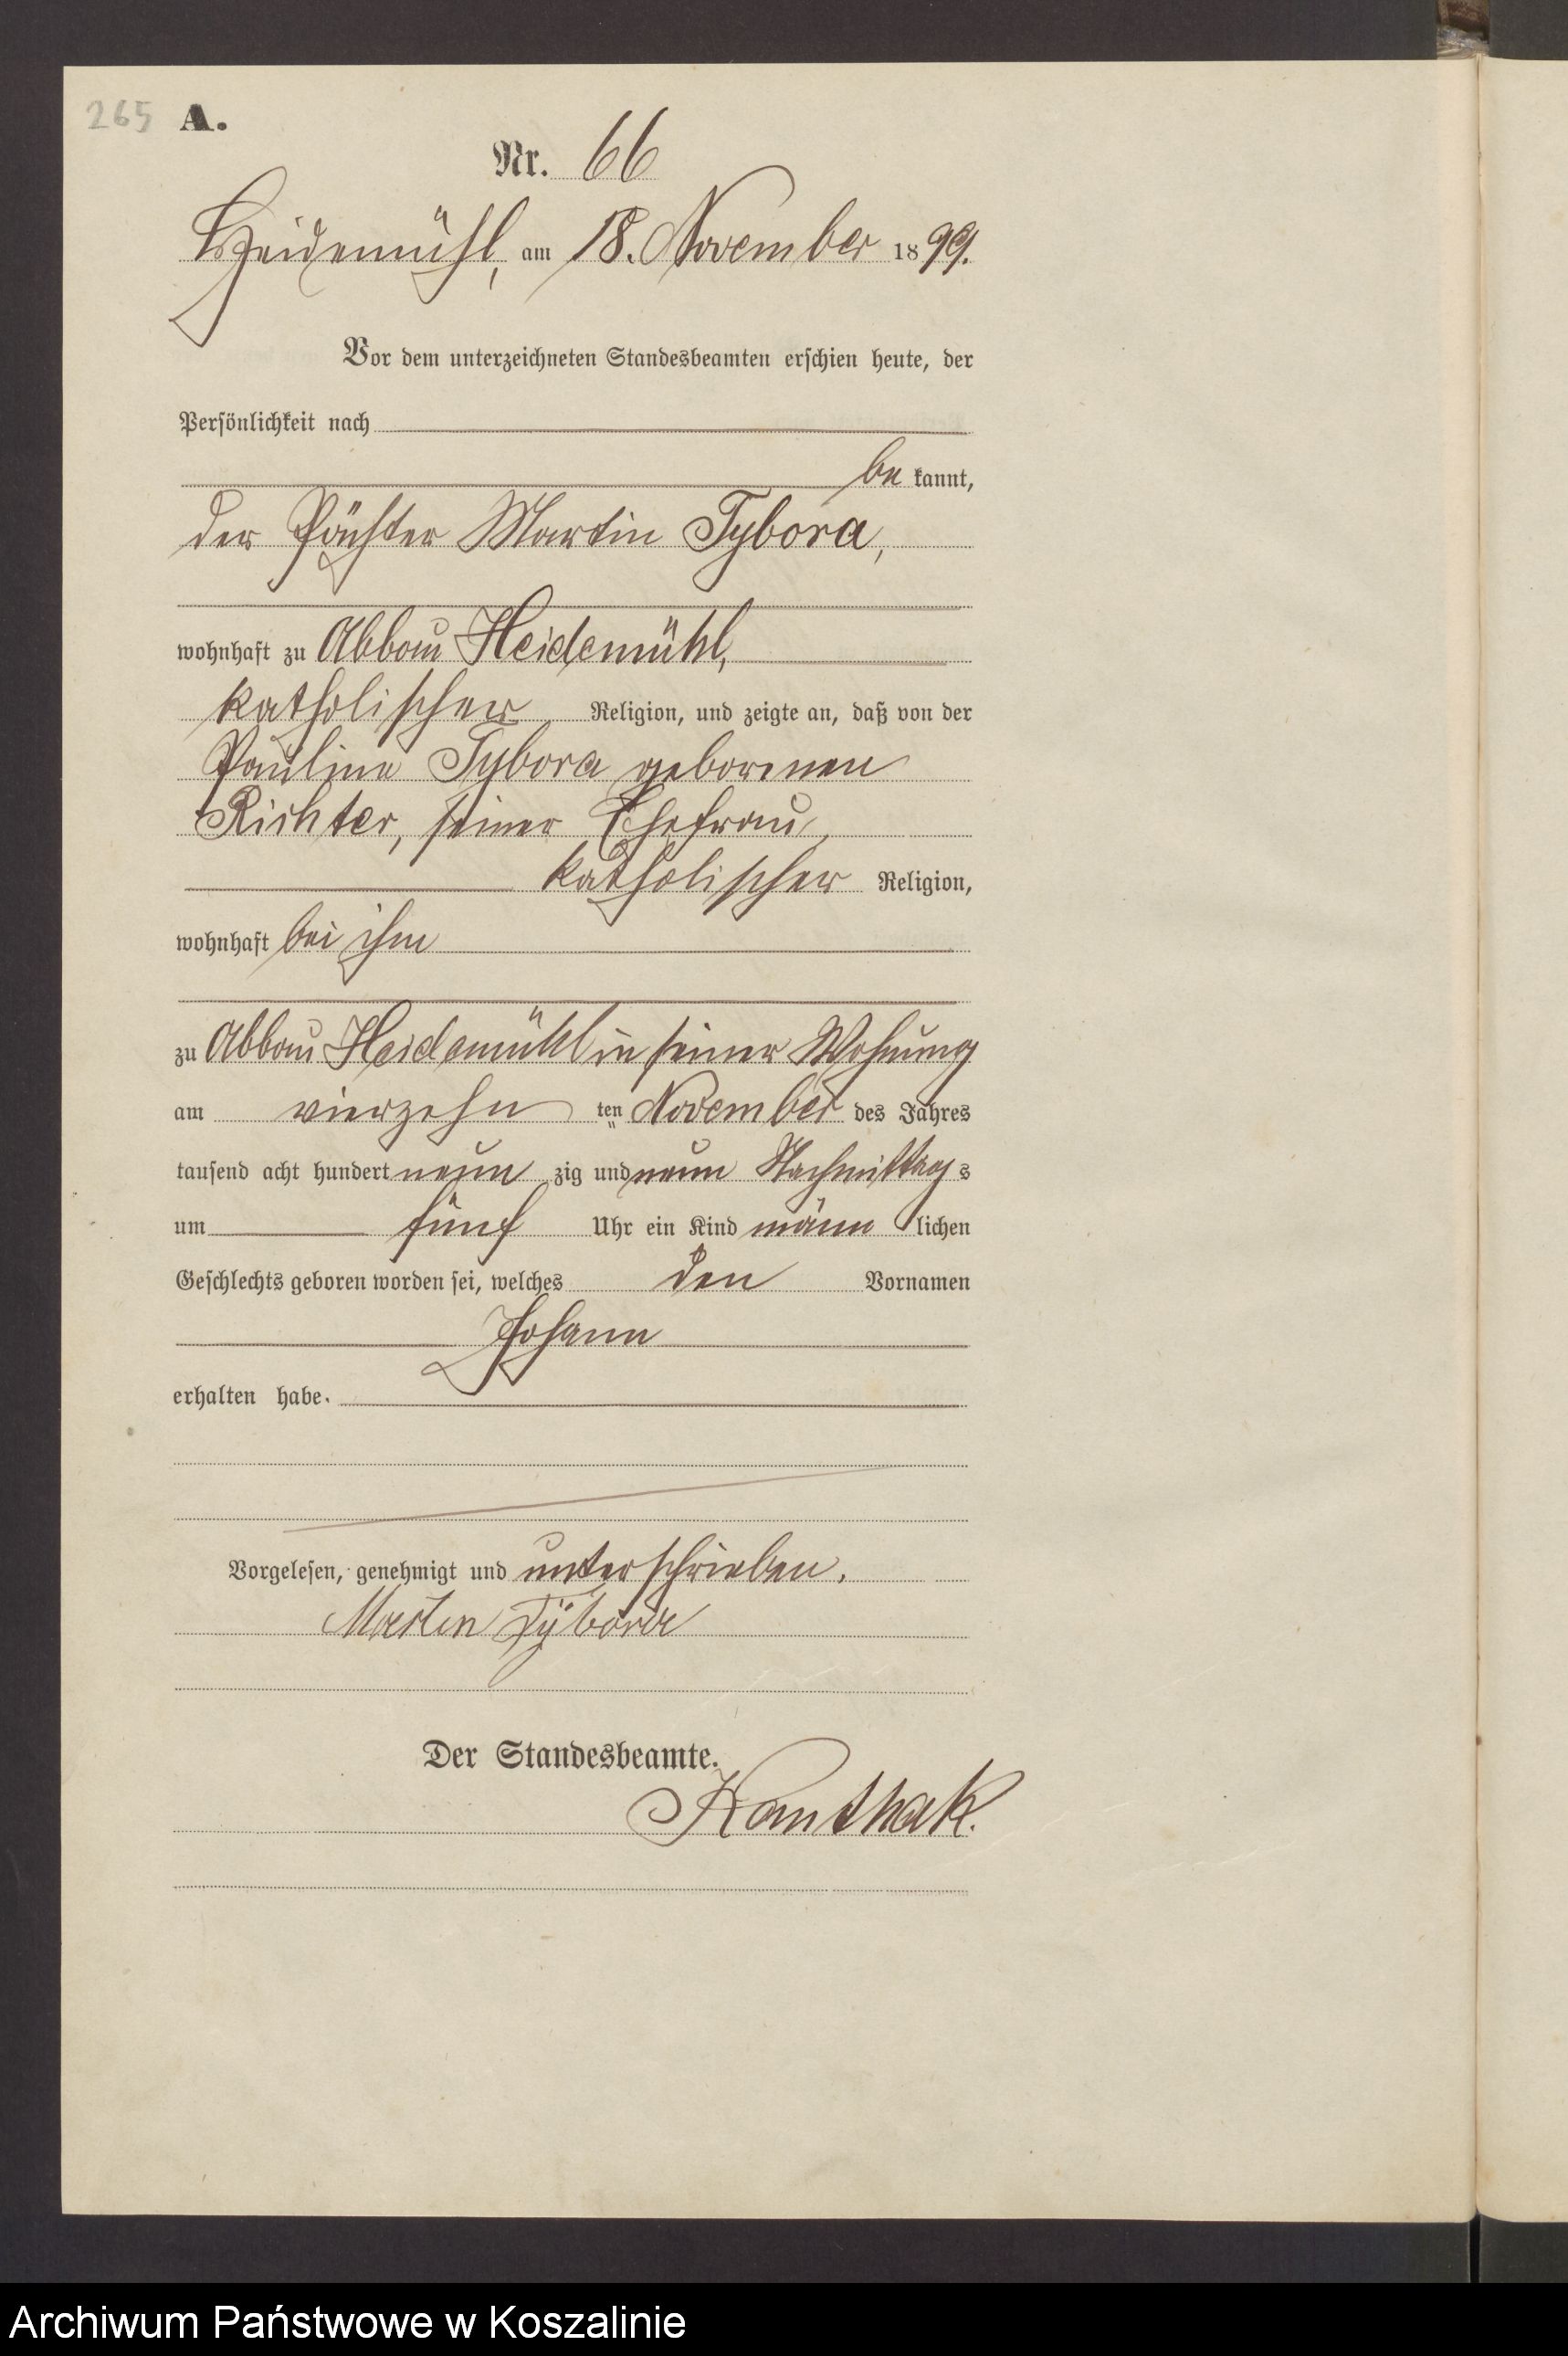 265 A.
Nr. 66
Heidemühl, am 18. November 1899.
Vor dem unterzeichneten Standesbeamten erschien heute, der
Persönlichkeit nach
be kannt,
der Pächter Martin Tybora,
wohnhaft zu Abbau Heidemühl,
katholischer Religion, und zeigte an, daß von der
Pauline Tybora geborenen
Richter, seiner Ehefrau,
katholischer Religion,
wohnhaft bei ihm
zu Abbau Heidemühl in seiner Wohnung
am vierzehn ten November des Jahres
tausend acht hundert neun zig und neun Nachmittag s
um fünf Uhr ein Kind männ lichen
Geschlechts geboren worden sei, welches den Vornamen
Johann
erhalten habe.
Vorgelesen, genehmigt und unterschrieben.
Martin Tÿbora
Der Standesbeamte.
Kanthak.
Archiwum Państwowe w Koszalinie